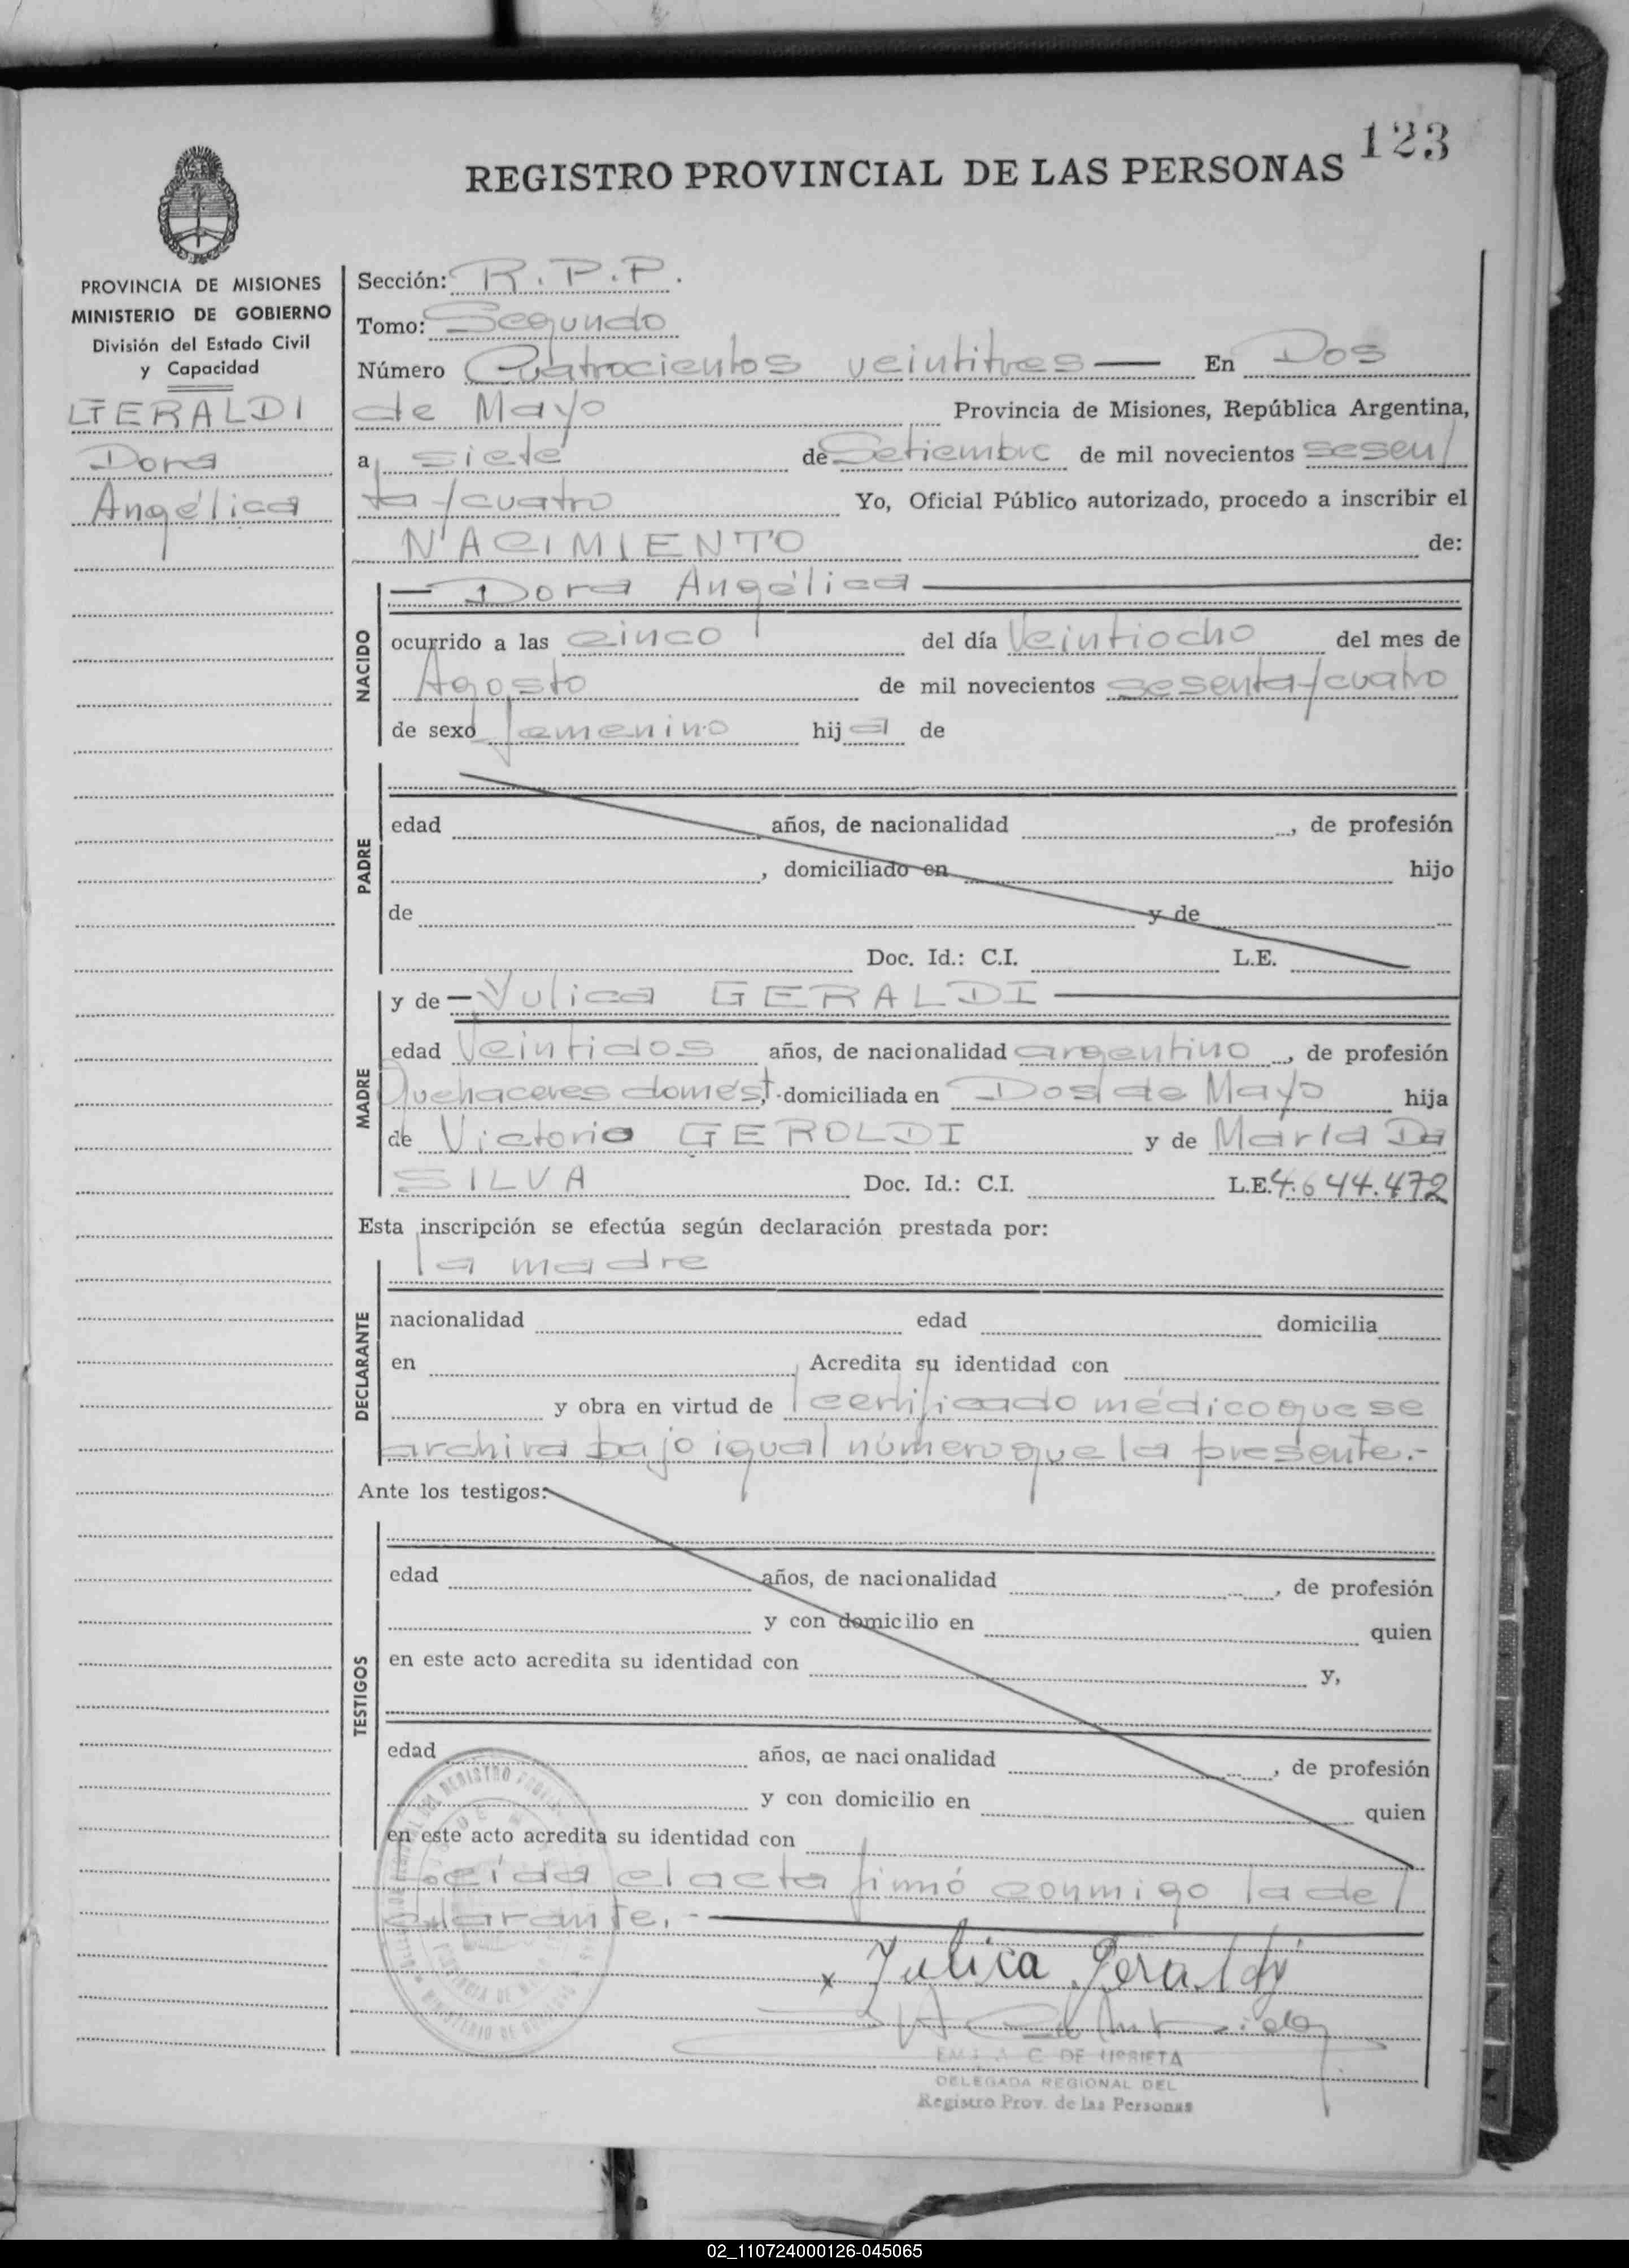 123
REGISTRO PROVINCIAL DE LAS PERSONAS
PROVINCIA DE MISIONES
MINISTERIO DE GOBIERNO
División del Estado Civil
y Capacidad
GERALDI
Dora
Angélica
Sección: R.P.P.
Tomo: Segundo
Número Cuatrocientos veintitres — En Dos
de Mayo Provincia de Misiones, República Argentina,
a siete de Setiembre de mil novecientos sesen/
ta y cuatro Yo, Oficial Público autorizado, procedo a inscribir el
NACIMIENTO de:
NACIDO
— Dora Angélica —
ocurrido a las cinco del día Veintiocho del mes de
Agosto de mil novecientos sesenta y cuatro
de sexo femenino hija de
PADRE
edad años, de nacionalidad , de profesión
, domiciliado en hijo
de y de
Doc. Id.: C.I. L.E.
MADRE
y de — Yulica GERALDI —
edad Veintidos años, de nacionalidad argentino , de profesión
Quehaceres domést. domiciliada en Dos de Mayo hija
de Victorio GEROLDI y de María Da
SILVA Doc. Id.: C.I. L.E. 4.644.472
Esta inscripción se efectúa según declaración prestada por:
DECLARANTE
la madre
nacionalidad edad domicilia
en Acredita su identidad con
y obra en virtud de certificado médico que se
archiva bajo igual número que la presente.-
Ante los testigos:
TESTIGOS
edad años, de nacionalidad , de profesión
y con domicilio en quien
en este acto acredita su identidad con y,
edad años, de nacionalidad , de profesión
y con domicilio en quien
en este acto acredita su identidad con
Leída el acta firmó conmigo la de/
clarante.-
x Yulica Geraldi
C. DE URRIETA
DELEGADA REGIONAL DEL
Registro Prov. de las Personas
02_110724000126-045065